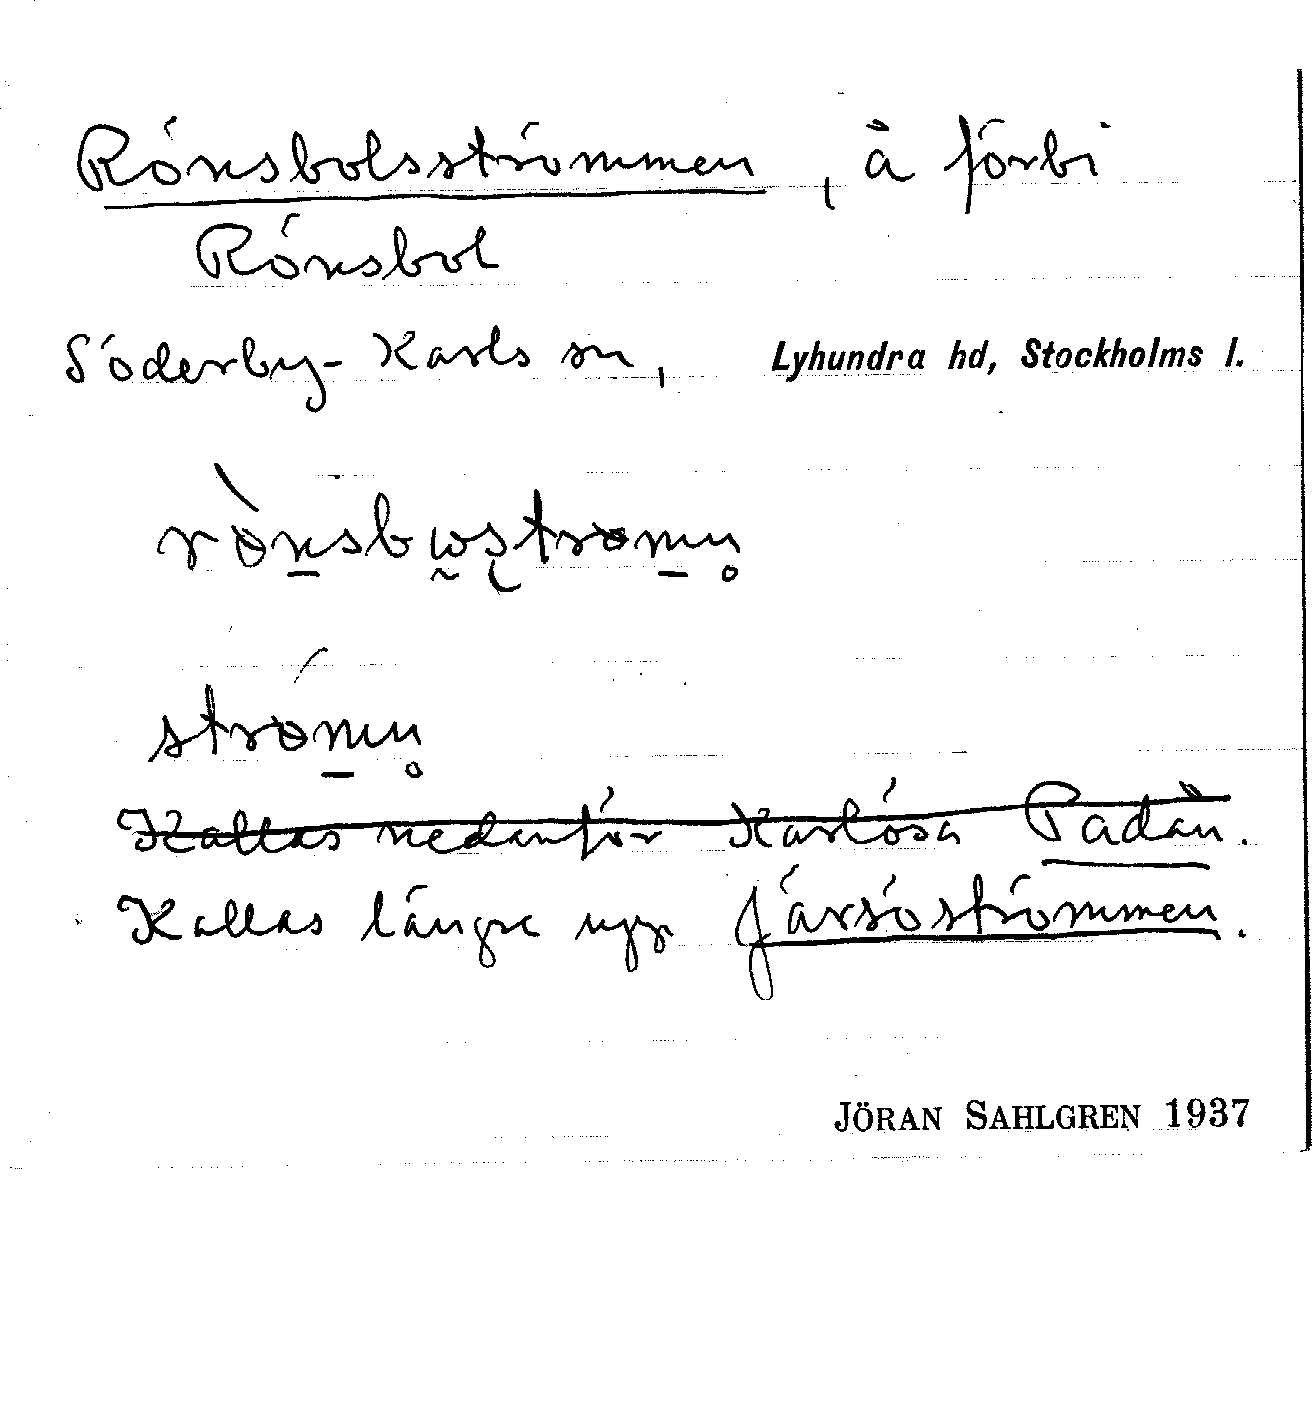 Rönsbolsströmmen, å förbi
Rönsbol
Söderby-Karls sn, Lyhundra hd, Stockholms l.
rònsbωstromn̥
strömn̥
Kallas nedanför Karlösa Padån.
Kallas längre upp Järsöströmmen.
JÖRAN SAHLGREN 1937